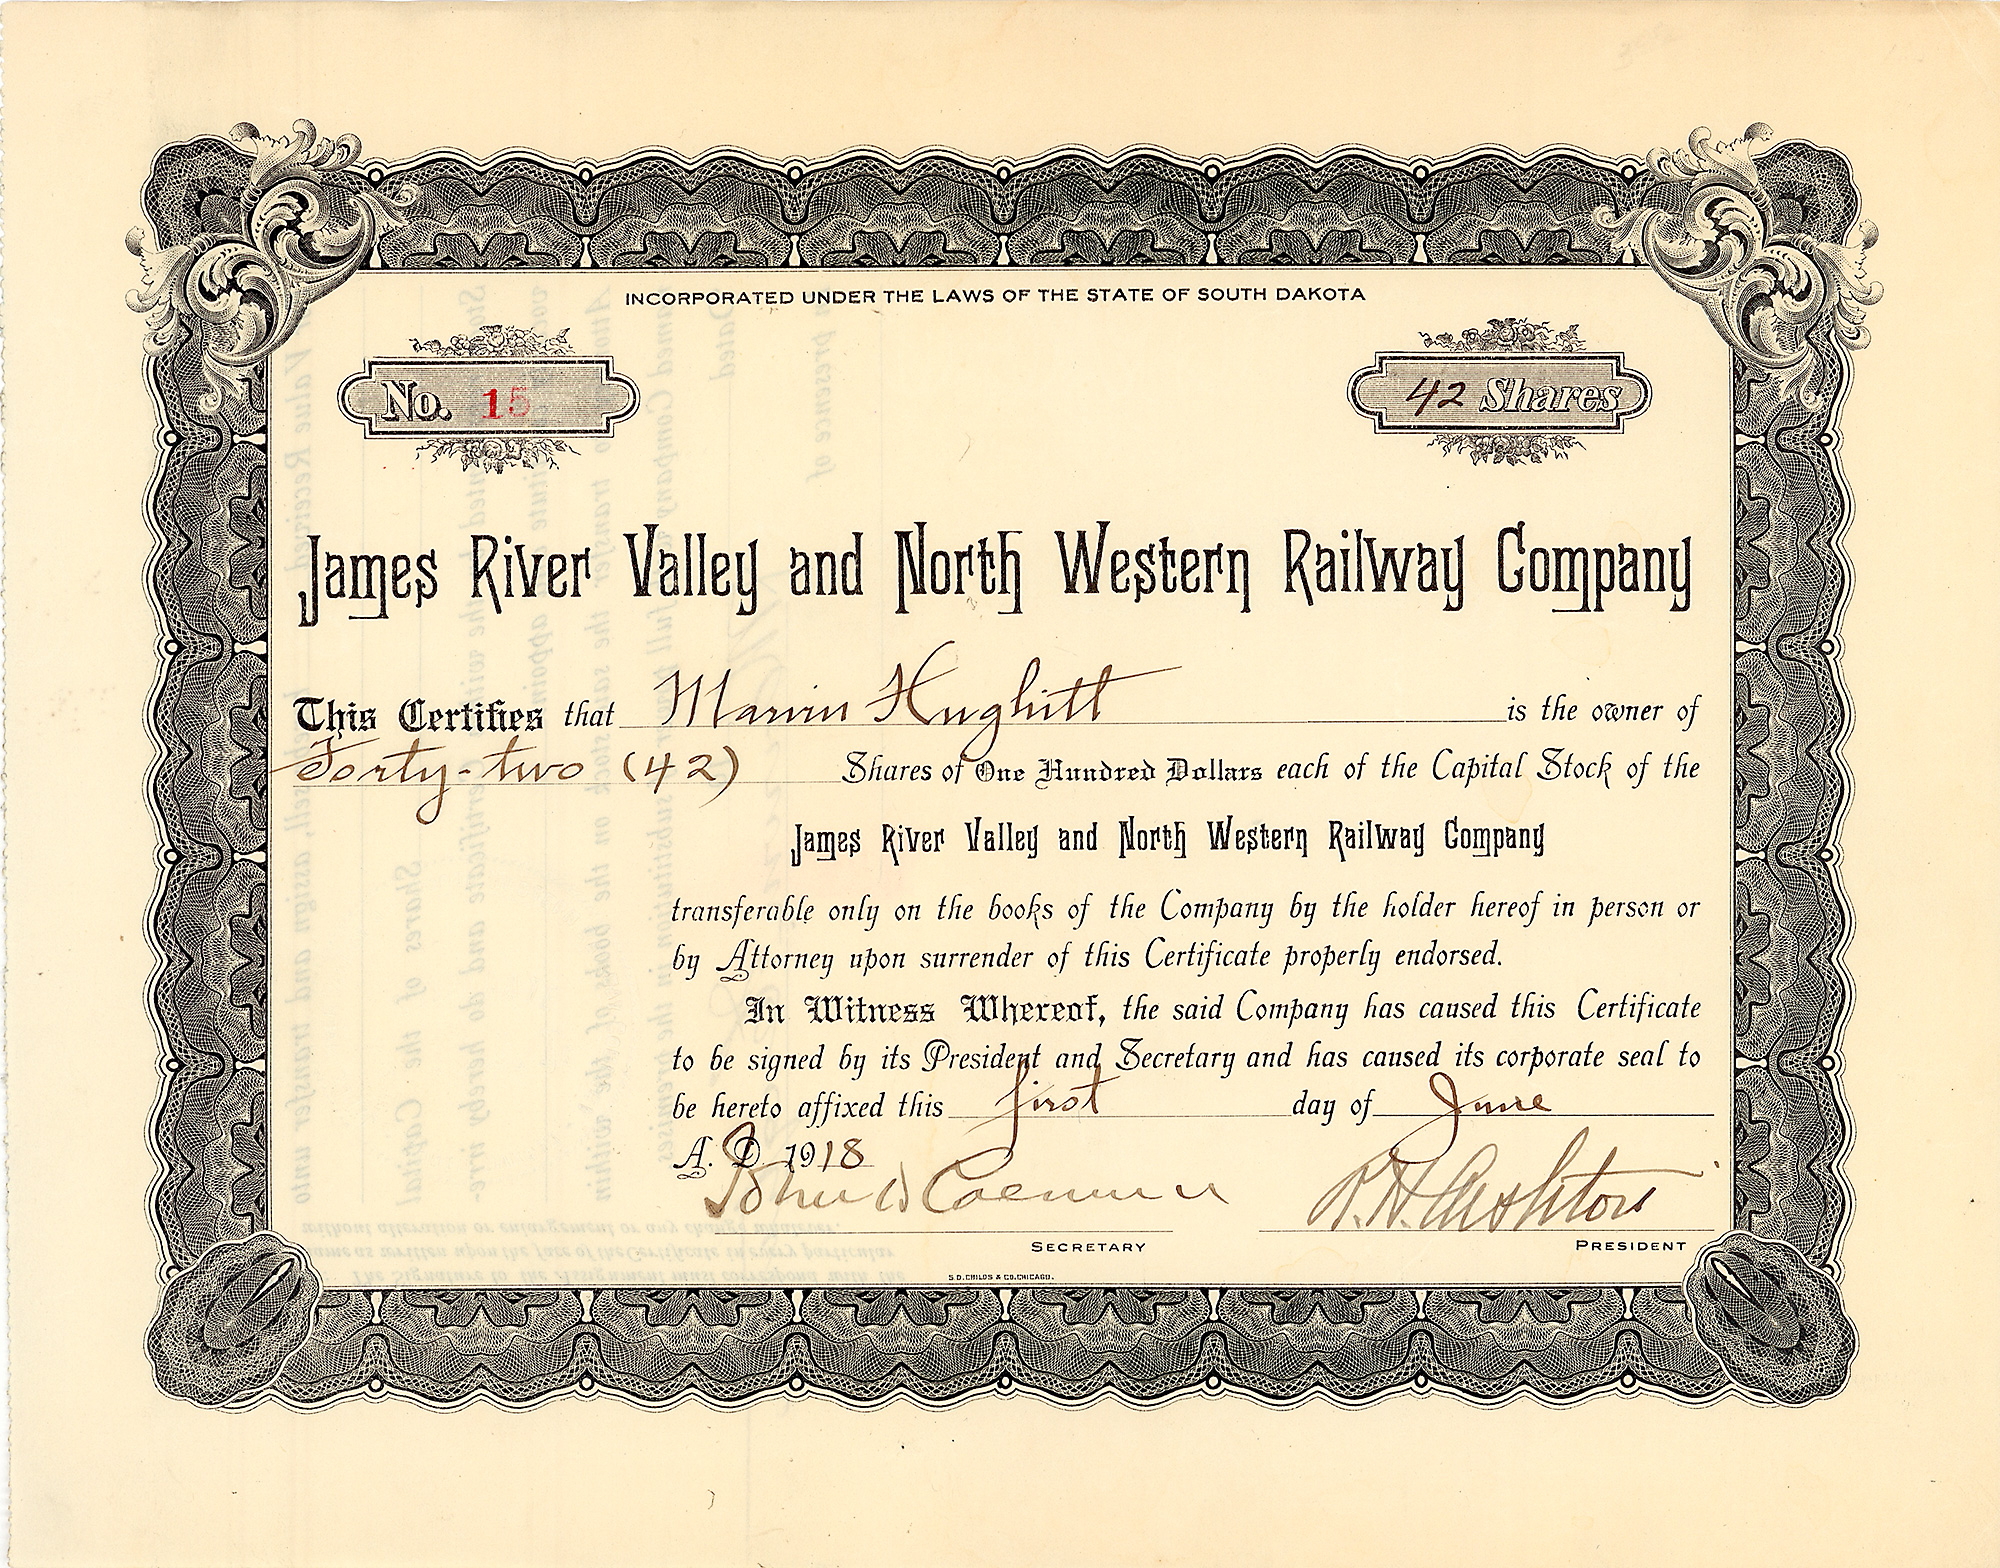 INCORPORATED UNDER THE LAWS OF THE STATE OF SOUTH DAKOTA
No. 15
42 Shares
James River Valley and North Western Railway Company
This Certifies that Marvin Hughitt is the owner of
Forty-two (42) Shares of One Hundred Dollars each of the Capital Stock of the
James River Valley and North Western Railway Company
transferable only on the books of the Company by the holder hereof in person or
by Attorney upon surrender of this Certificate properly endorsed.
In Witness Whereof, the said Company has caused this Certificate
to be signed by its President and Secretary and has caused its corporate seal to
be hereto affixed this first day of June
A. D. 1918
John D Caldwell
R. H. Aishton
SECRETARY
PRESIDENT
S.D. CHILDS & CO. CHICAGO.